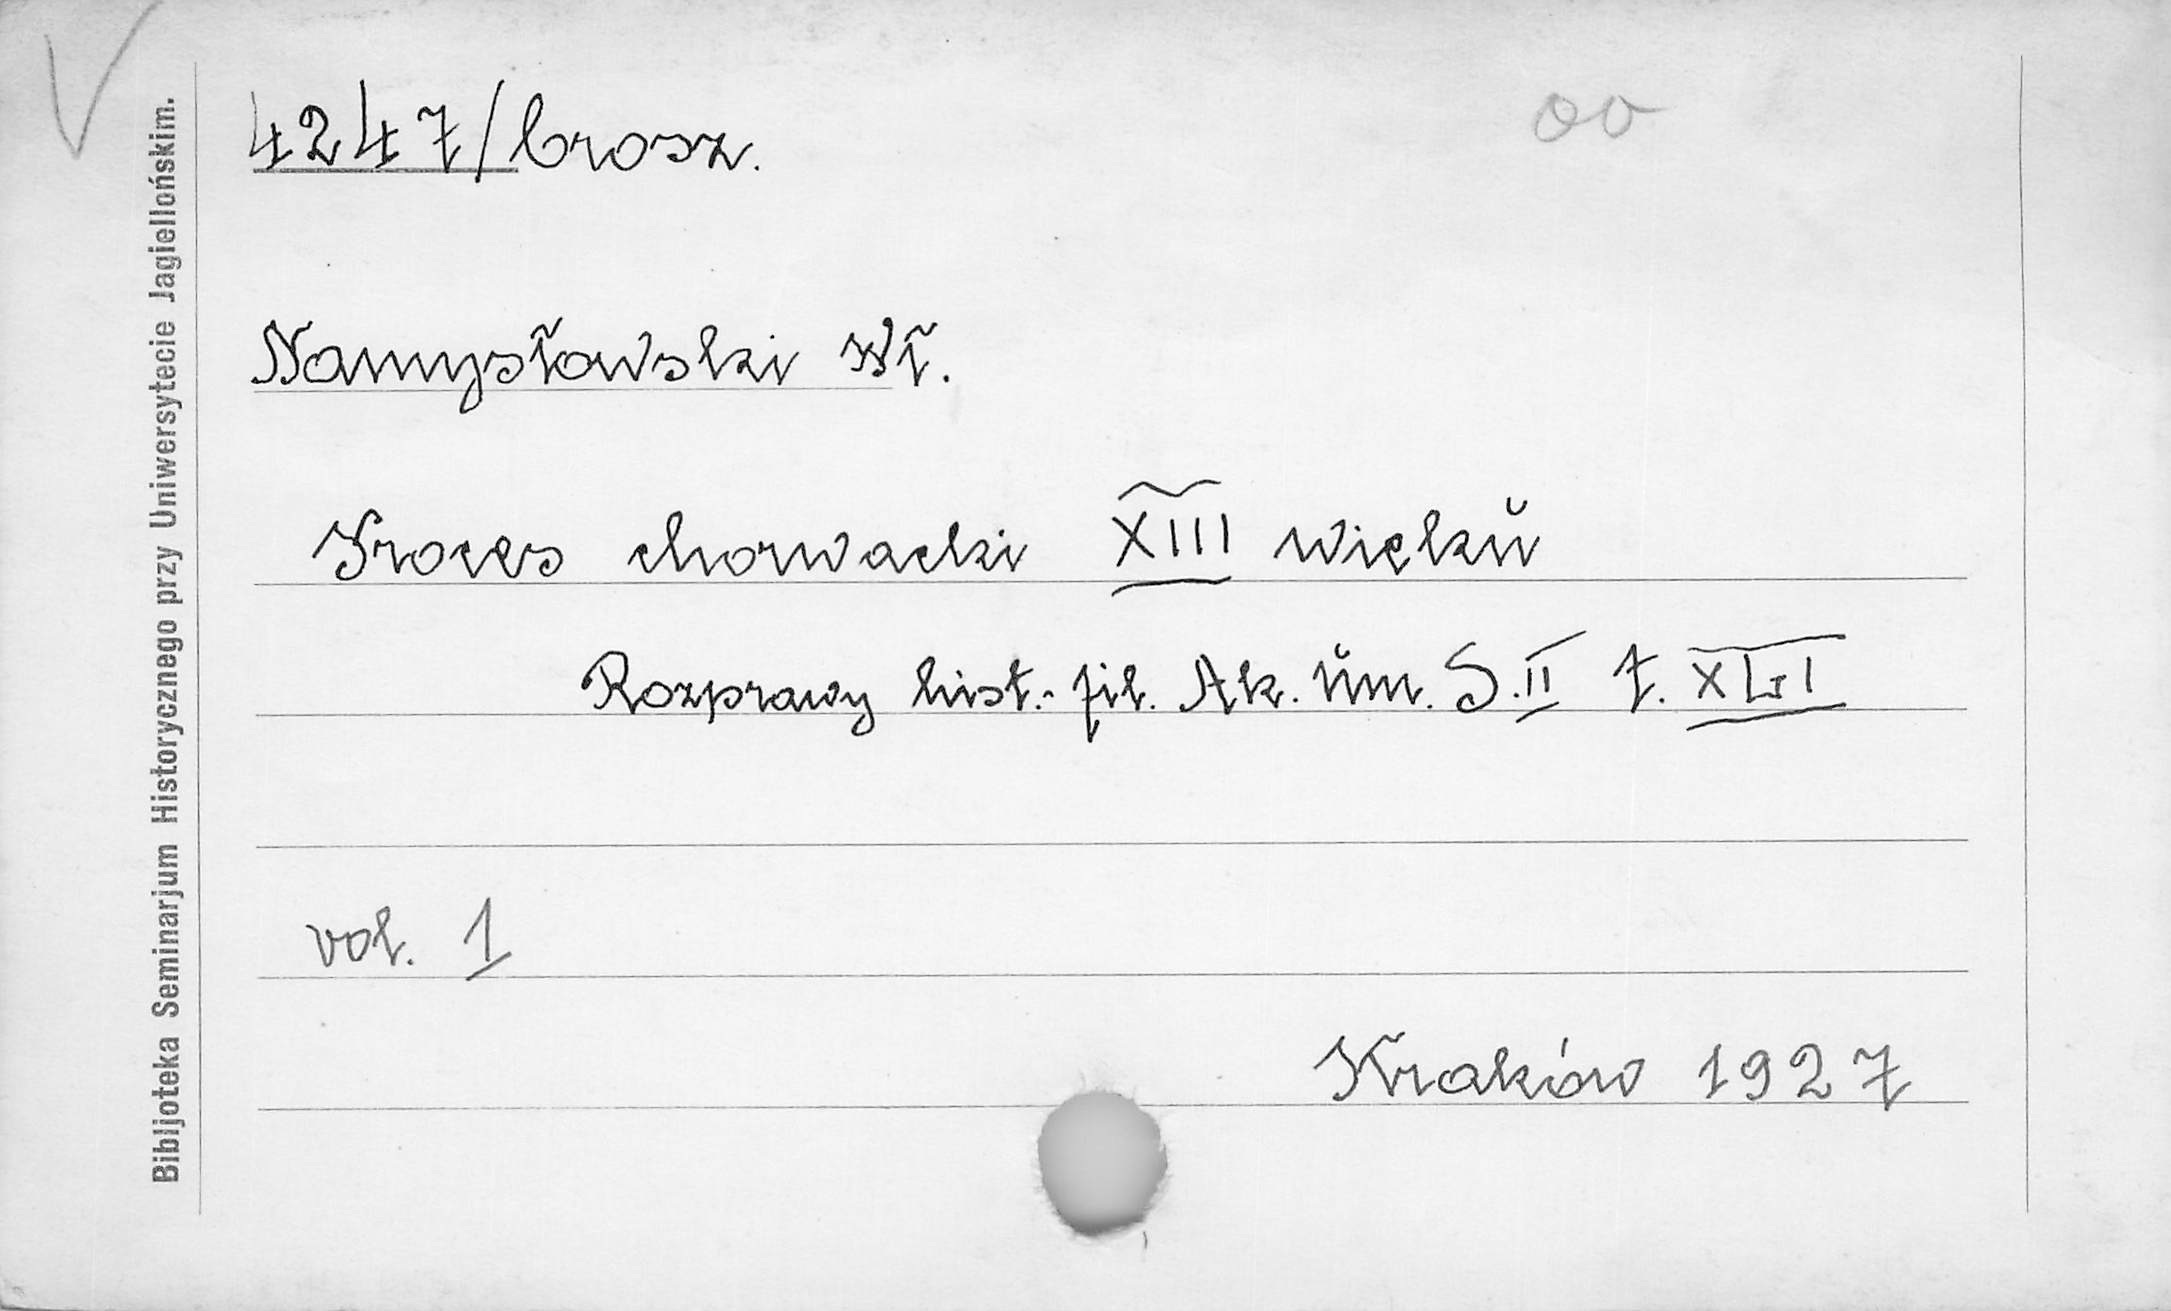 4247/brosz.
oo
Namysłowski Wł.
Proces chorwacki XIII więku
Rozprawy hist.-fil. Ak. Um. S.II t. XLI
vol. 1
Kraków 1927
Bibljoteka Seminarjum Historycznego przy Uniwersytecie Jagiellońskim.